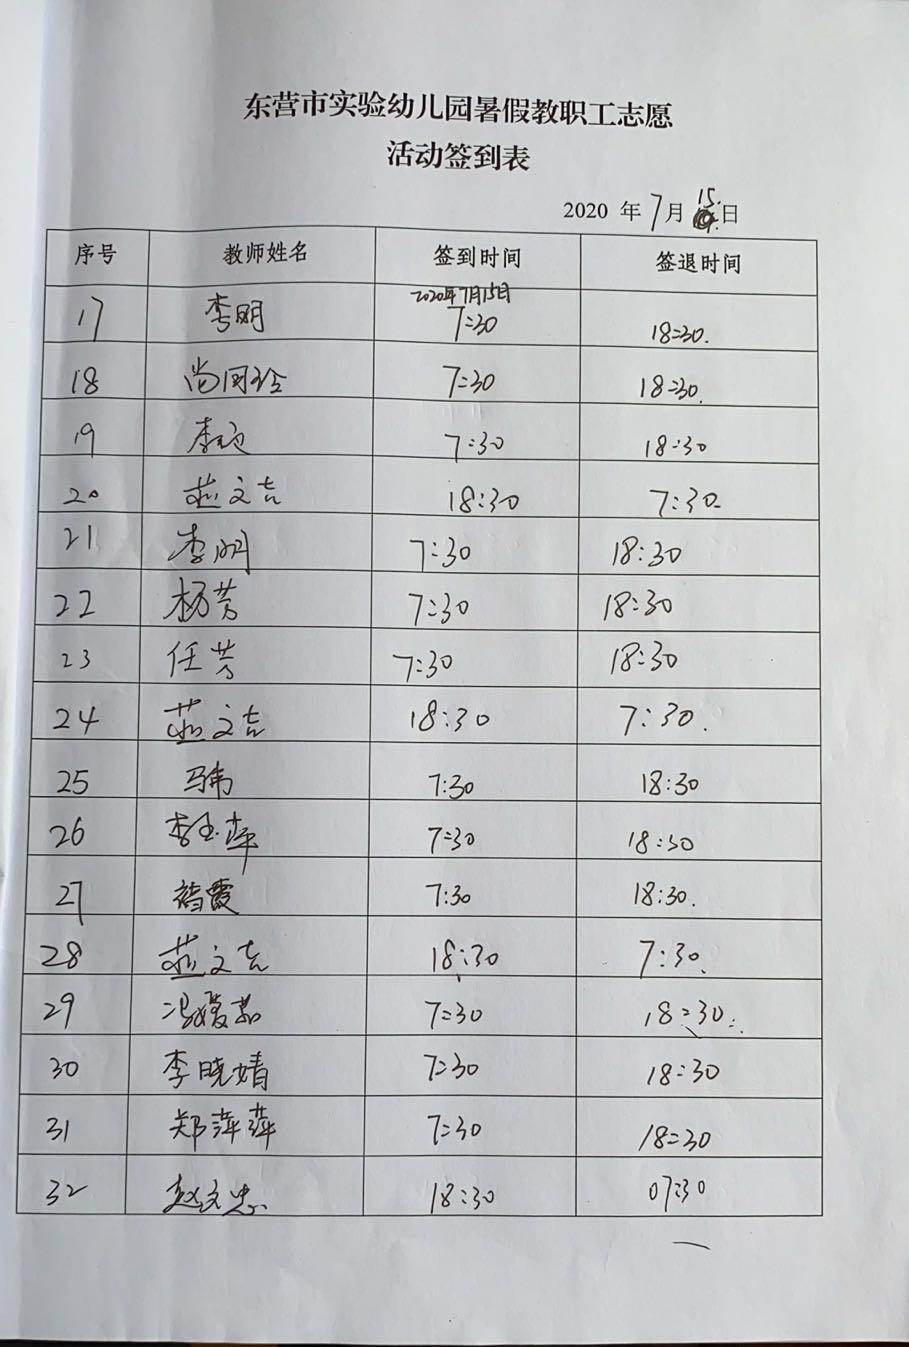 东营市实验幼儿园暑假教职工志愿
活动签到表
2020 年 7月 15日
序号 教师姓名 签到时间 签退时间
2020年7月15日
17 李明 7:30 18:30.
18 尚 7:30 18:30.
19 李 7:30 18:30
20 文吉 18:30 7:30.
21 李明 7:30 18:30
22 杨芳 7:30 18:30
23 任芳 7:30 18:30
24 文吉 18:30 7:30.
25 马韦 7:30 18:30
26 李玉萍 7:30 18:30
27 霞 7:30 18:30.
28 文吉 18:30 7:30.
29 冯媛茹 7:30 18:30.
30 李晓婧 7:30 18:30
31 郑萍萍 7:30 18:30
32 赵文忠 18:30 07:30